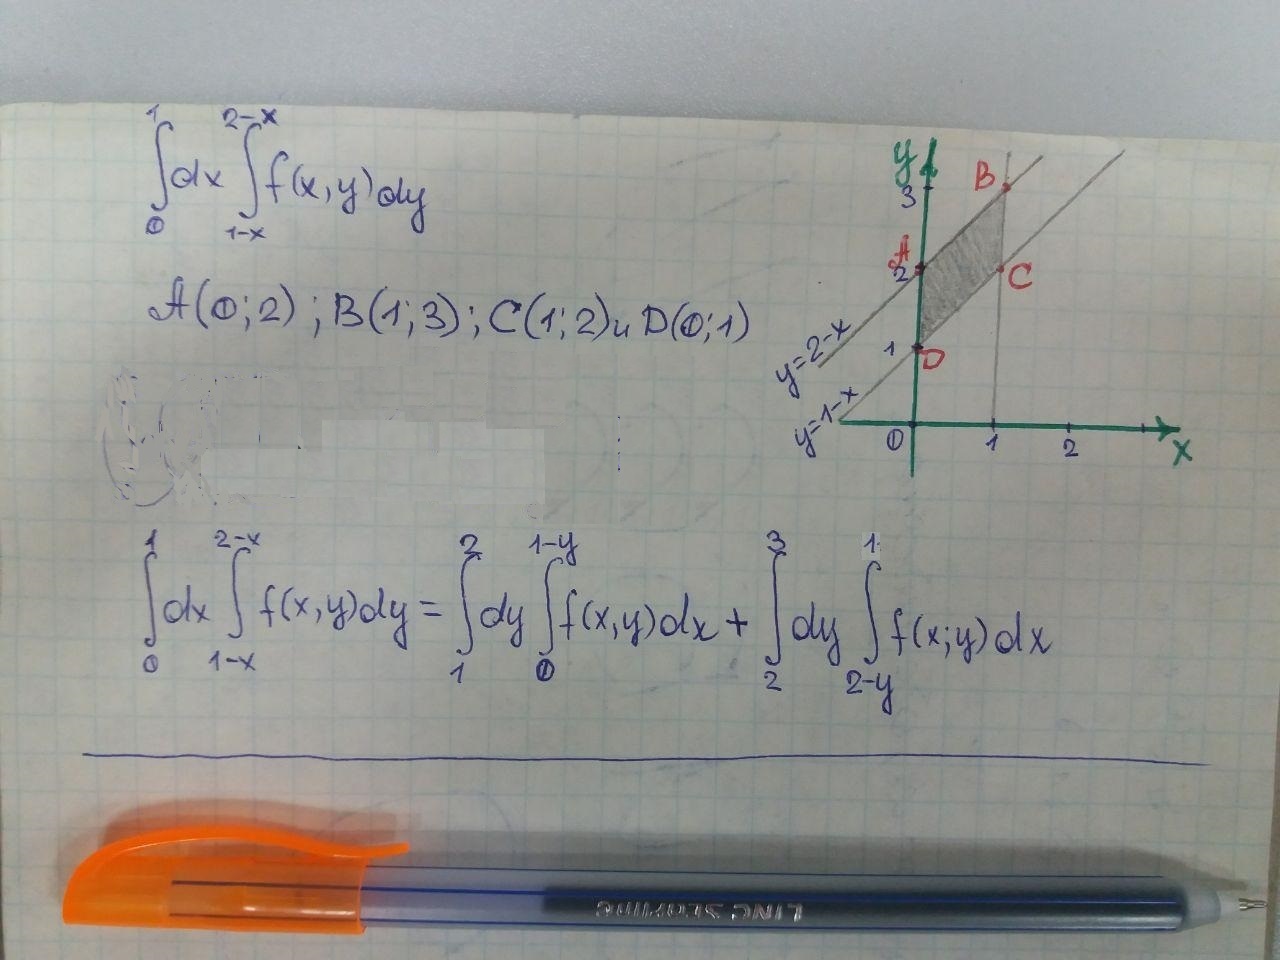 ∫₀¹ dx ∫_{1-x}^{2-x} f(x, y) dy
A(0; 2) ; B(1; 3) ; C(1; 2) и D(0; 1)
y
3
B
A
2
C
y=2-x
1
D
y=1-x
0
1
2
x
∫₀¹ dx ∫_{1-x}^{2-x} f(x, y) dy = ∫₁² dy ∫₀^{1-y} f(x, y) dx + ∫₂³ dy ∫_{2-y}^{1} f(x; y) dx
LINC